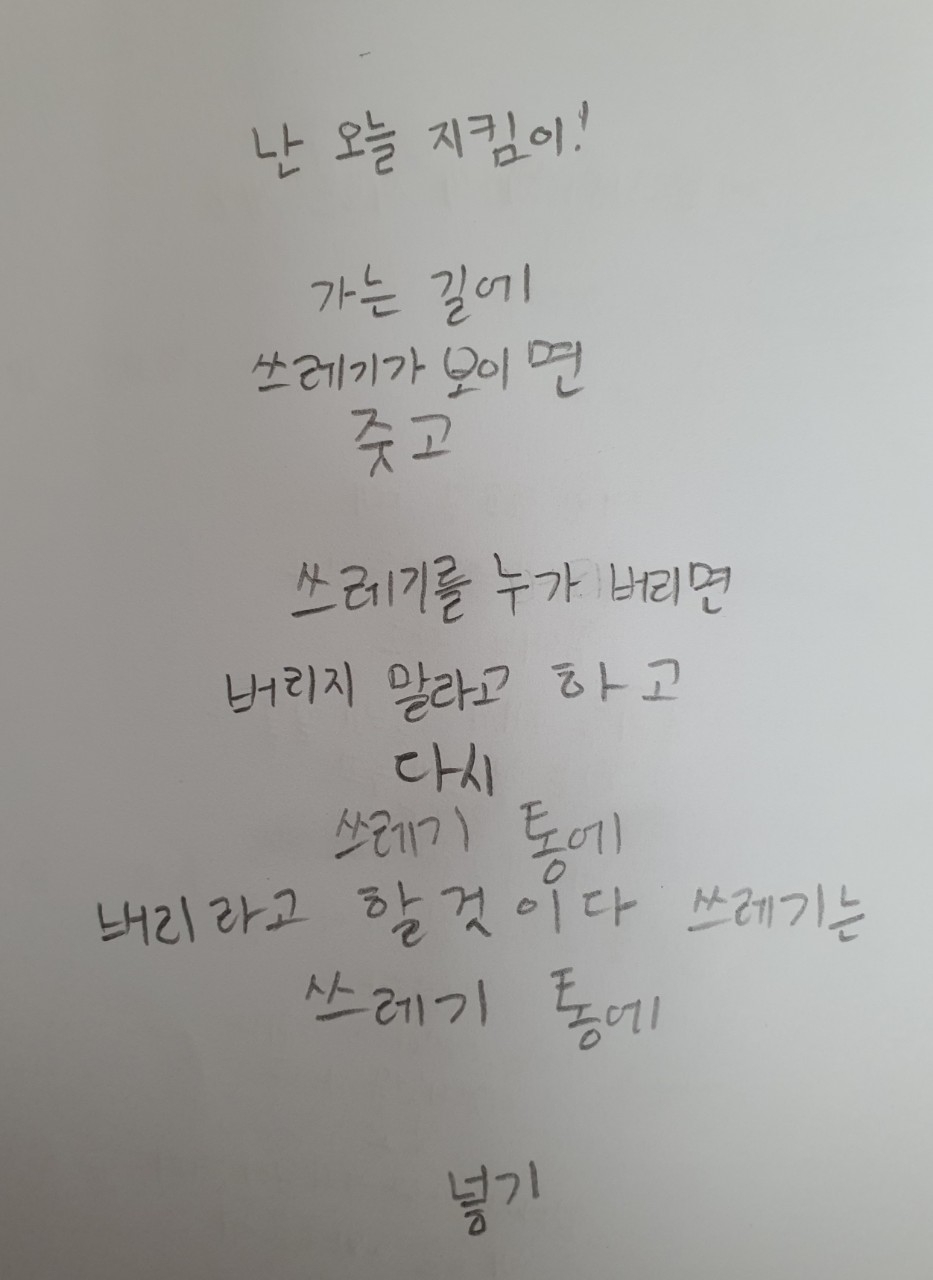 난 오늘 지킴이!
가는 길에
쓰레기가 보이면
줏고
쓰레기를 누가 버리면
버리지 말라고 하고
다시
쓰레기 통에
버리라고 할것이다 쓰레기는
쓰레기 통에
넣기